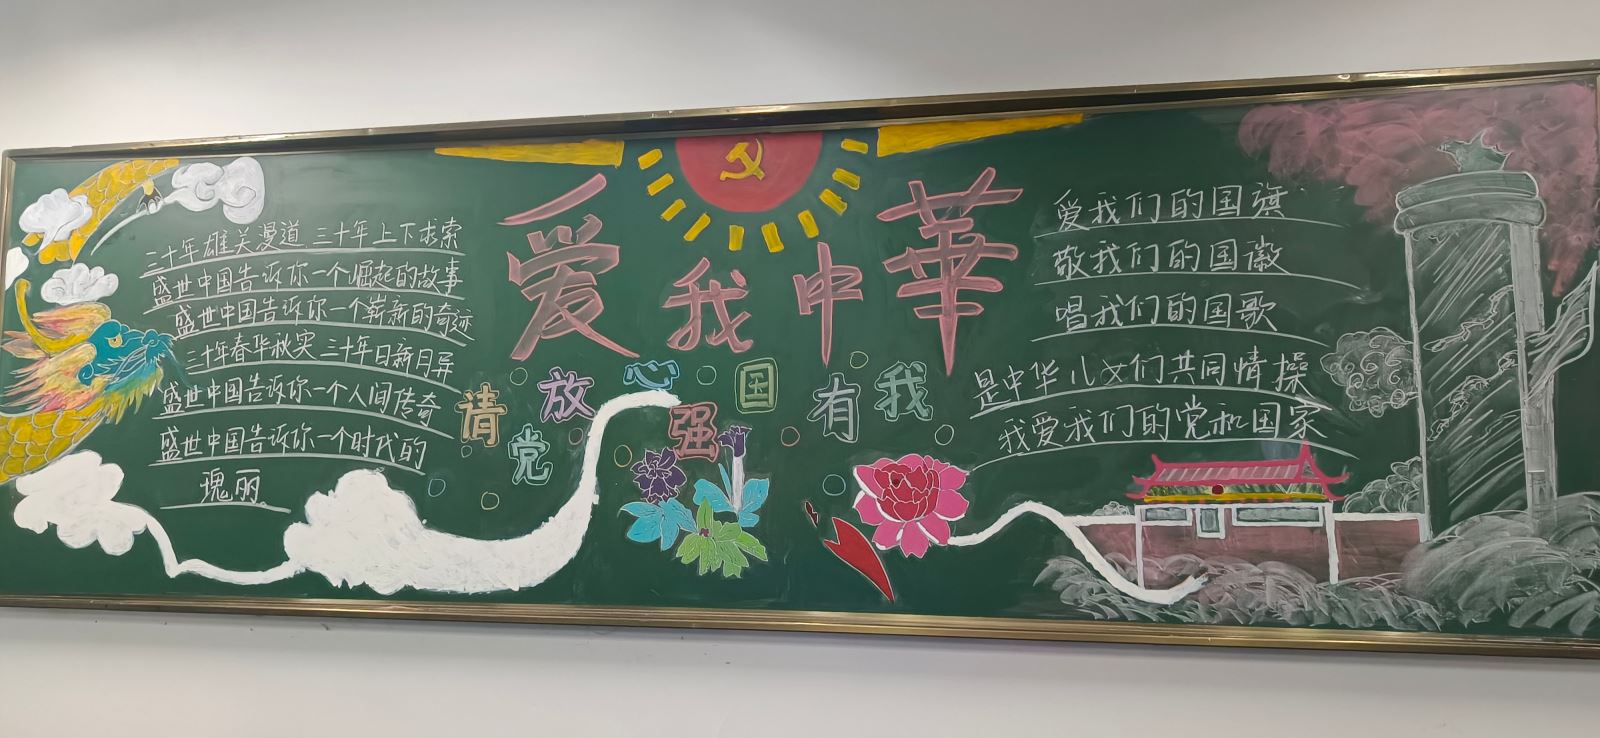 爱我中華
请党放心强国有我
三十年雄关漫道 三十年上下求索
盛世中国告诉你一个崛起的故事
盛世中国告诉你一个崭新的奇迹
三十年春华秋实 三十年日新月异
盛世中国告诉你一个人间传奇
盛世中国告诉你一个时代的
瑰丽
爱我们的国旗
敬我们的国徽
唱我们的国歌
是中华儿女们共同情操
我爱我们的党和国家